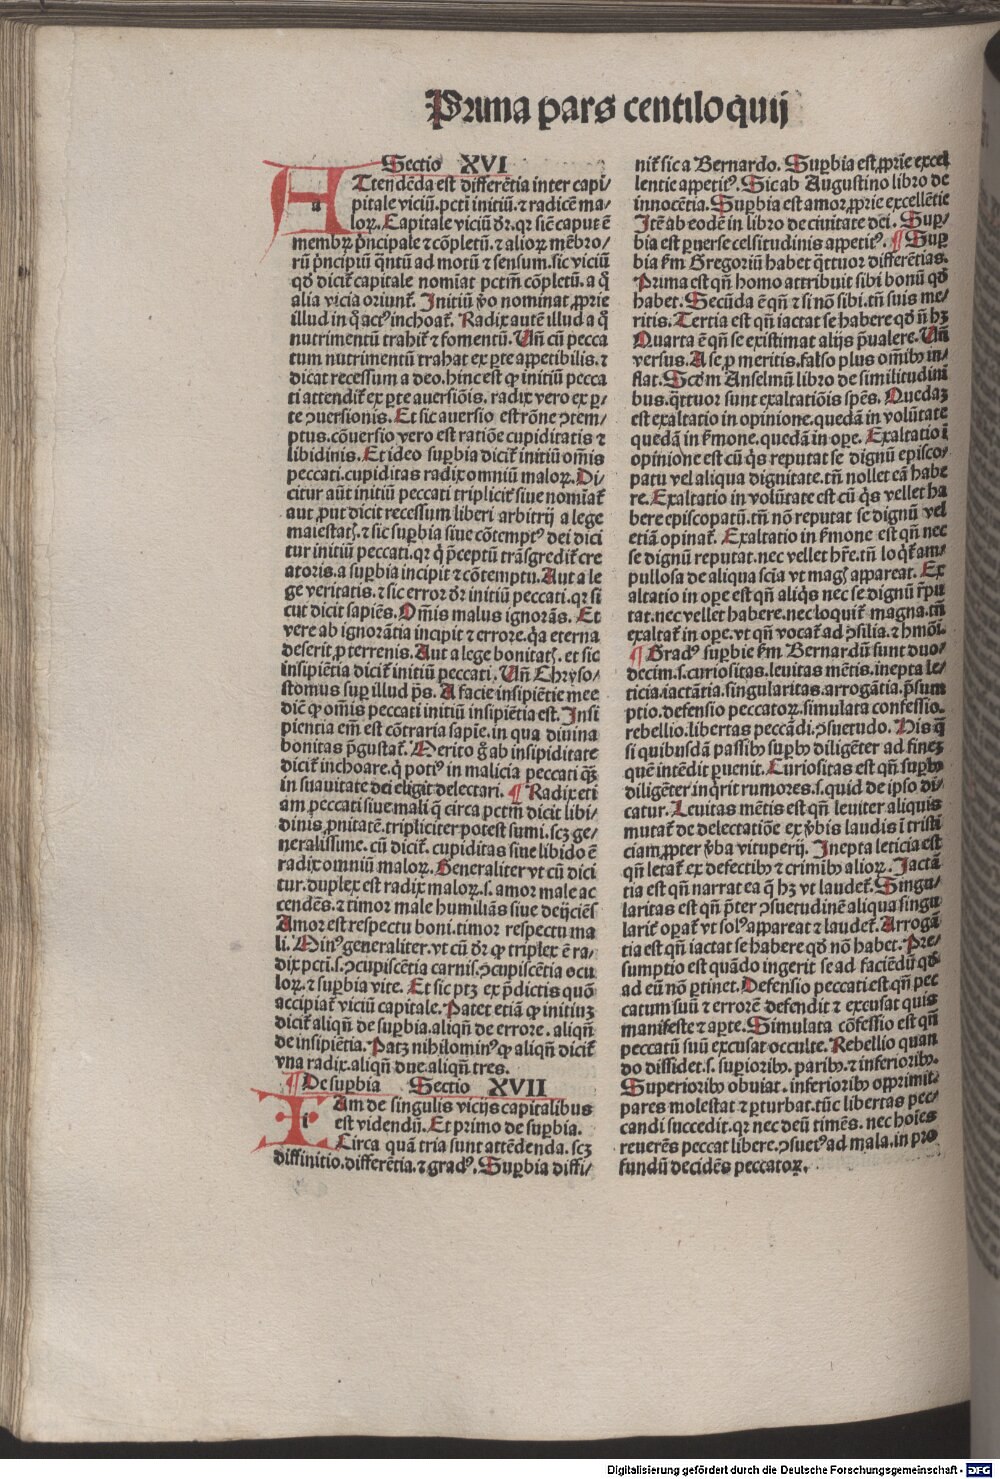 Prima pars centiloquij
Sectio XVI
ATtendēda est differētia inter capi/
pitale viciū. pctī initiū. ⁊ radicē ma/
loꝝ. Capitale viciū dr̄. qꝛ sić caput ē
membꝝ pͥncipale ⁊ cōpletū. ⁊ alioꝝ mēbro/
rū pͥncipiū qͣntū ad motū ⁊ sensum. sic viciū
qd̄ dicit᷑ capitale nomīat pctm̄ cōpletū. a qͦ
alia vicia oriunt᷑. Initiū v̄o nominat ꝓprie
illud in qͦ actꝰ inchoat᷑. Radix autē illud a qͦ
nutrimentū trahit᷑ ⁊ fomentū. Un̄ cū pecca
tum nutrimentū trahat ex ꝑte appetibilis. ⁊
dicat recessum a deo. hinc est ꝙ initiū pecca
ti attendit᷑ ex ꝑte auersiōis. radix vero ex ꝑ/
te ꝯuersionis. Et sic auersio est rōne ꝯtem/
ptus. cōuersio vero est ratiōe cupiditatis ⁊
libidinis. Et ideo suꝑbia dicit᷑ initiū om̄is
peccati. cupiditas radix omniū maloꝝ. Di/
citur aūt initiū peccati triplicit᷑ siue nomīat᷑
aut ꝓut dicit recessum liberi arbitrij a lege
maiestatꝭ. ⁊ sic suꝑbia siue cōtemptꝰ dei dici
tur initiū peccati. qꝛ qͥ p̄ceptū trāsgredit᷑ cre
atoris. a suꝑbia incipit ⁊ cōtemptu. Aut a le
ge veritatis. ⁊ sic error dr̄ initiū peccati. qꝛ si
cut dicit sapiēs. Om̄is malus ignorās. Et
vere ab ignorātia incipit ⁊ errore. qͥa eterna
deserit ꝓ terrenis. Aut a lege bonitatꝭ. et sic
insipiētia dicit᷑ initiū peccati. Un̄ Chryso/
stomus suꝑ illud ps̄. A facie insipiētie mee
dic̄ ꝙ om̄is peccati initiū insipiētia est. Insi
pientia em̄ est cōtraria sapīe. in qua diuina
bonitas p̄gustat᷑. Merito g̊ ab insipiditate
dicit᷑ inchoare. qͥ potiꝰ in malicia peccati qͣꝫ
in suauitate dei eligit delectari. ¶ Radix eti
am peccati siue mali q̄ circa pctm̄ dicit libi/
dinis ꝓnitatē. tripliciter potest sumi. scꝫ ge/
neralissime. cū dicit᷑. cupiditas siue libido ē
radix omniū maloꝝ. Generaliter vt cū dici
tur. duplex est radix maloꝝ. s. amor male ac
cendēs. ⁊ timor male humiliās siue deijciēs
Amor est respectu boni. timor respectu ma
li. Minꝰ generaliter. vt cū dr̄ ꝙ triplex ē ra/
dix pctī. s. ꝯcupiscētia carnis. ꝯcupiscētia ocu
loꝝ. ⁊ suꝑbia vite. Et sic ptꝫ ex p̄dictis quō
accipiat᷑ viciū capitale. Patet etiā ꝙ initiuꝫ
dicit᷑ aliqn̄ de suꝑbia. aliqn̄ de errore. aliqn̄
de insipiētia. Patꝫ nihilominꝰ ꝙ aliqn̄ dicit᷑
vna radix. aliqn̄ due. aliqn̄ tres.
¶ De suꝑbia Sectio XVII
IAm de singulis vicijs capitalibus
est videndū. Et primo de suꝑbia.
Circa quā tria sunt attēdenda. scꝫ
diffinitio. differētia. ⁊ gradꝰ. Suꝑbia diffi/
nit᷑ sic a Bernardo. Suꝑbia est ꝓprie excel
lentie appetitꝰ. Sic ab Augustino libro de
innocētia. Suꝑbia est amor ꝓprie excellētie
Itē ab eodē in libro de ciuitate dei. Suꝑ/
bia est ꝑuerse celsitudinis appetitꝰ. ¶ Suꝑ
bia ẜm Gregoriū habet qͣttuor differētias.
Prima est qn̄ homo attribuit sibi bonū qd̄
habet. Secūda ē qn̄ ⁊ si nō sibi. tn̄ suis me/
ritis. Tertia est qn̄ iactat se habere qd̄ n̄ hꝫ
Quarta ē qn̄ se existimat alijs p̄ualere. Un̄
versus. A se ꝓ meritis. falso plus om̄ibꝰ in/
flat. Scd̄m Anselmū libro de similitudini
bus. qͣttuor sunt exaltatiōis sp̄es. Quedaꝫ
est exaltatio in opinione. quedā in volūtate
quedā in ẜmone. quedā in oꝑe. Exaltatio ī
opinione est cū qͥs reputat se dignū episco/
patu vel aliqua dignitate. tn̄ nollet eā habe
re. Exaltatio in volūtate est cū qͥs vellet ha
bere episcopatū. tn̄ nō reputat se dignū vel
etiā opinat᷑. Exaltatio in ẜmone est qn̄ nec
se dignū reputat. nec vellet hr̄e. tn̄ loqͥt᷑ am/
pullosa de aliqua scīa vt magꝭ appareat. Ex
altatio in oꝑe est qn̄ aliqͥs nec se dignū r̄pu
tat. nec vellet habere. nec loquit᷑ magna. tn̄
exaltat᷑ in oꝑe. vt qn̄ vocat᷑ ad ꝯsilia. ⁊ hmōi.
¶ Gradꝰ suꝑbie ẜm Bernardū sunt duo/
decim. s. curiositas. leuitas mētis. inepta le/
ticia. iactātia. singularitas. arrogātia. p̄sum
ptio. defensio peccatoꝝ. simulata confessio.
rebellio. libertas peccādi. ꝯsuetudo. His q̄
si quibusdā passibꝰ suꝑbꝰ diligēter ad fineꝫ
quē intēdit ꝑuenit. Curiositas est qn̄ suꝑbꝰ
diligēter inqͥrit rumores. s. quid de ipso di/
catur. Leuitas mētis est qn̄ leuiter aliquis
mutat᷑ de delectatiōe ex v̄bis laudis ī tristi
ciam ꝓpter v̄ba vituperij. Inepta leticia est
qn̄ letat᷑ ex defectibꝰ ⁊ crimibꝰ alioꝝ. Iactā
tia est qn̄ narrat ea q̄ hꝫ vt laudet᷑. Singu/
laritas est qn̄ p̄ter ꝯsuetudinē aliqua singu
larit᷑ oꝑat᷑ vt solꝰ appareat ⁊ laudet᷑. Arrogā
tia est qn̄ iactat se habere qd̄ nō habet. Pre/
sumptio est quādo ingerit se ad faciēdū qd̄
ad eū nō ꝑtinet. Defensio peccati est qn̄ pec
catum suū ⁊ errorē defendit ⁊ excusat quis
manifeste ⁊ aꝑte. Simulata cōfessio est qn̄
peccatū suū excusat occulte. Rebellio quan
do dissidet. s. suꝑioribꝰ. paribꝰ. ⁊ inferioribꝰ.
Superioribꝰ obuiat. inferioribꝰ opprimit.
pares molestat ⁊ ꝑturbat. tūc libertas pec/
candi succedit. qꝛ nec deū timēs. nec hoīes
reuerēs peccat libere. ꝯsuetꝰ ad mala. in pro
fundū decidēs peccatoꝝ.
Digitalisierung gefördert durch die Deutsche Forschungsgemeinschaft - DFG